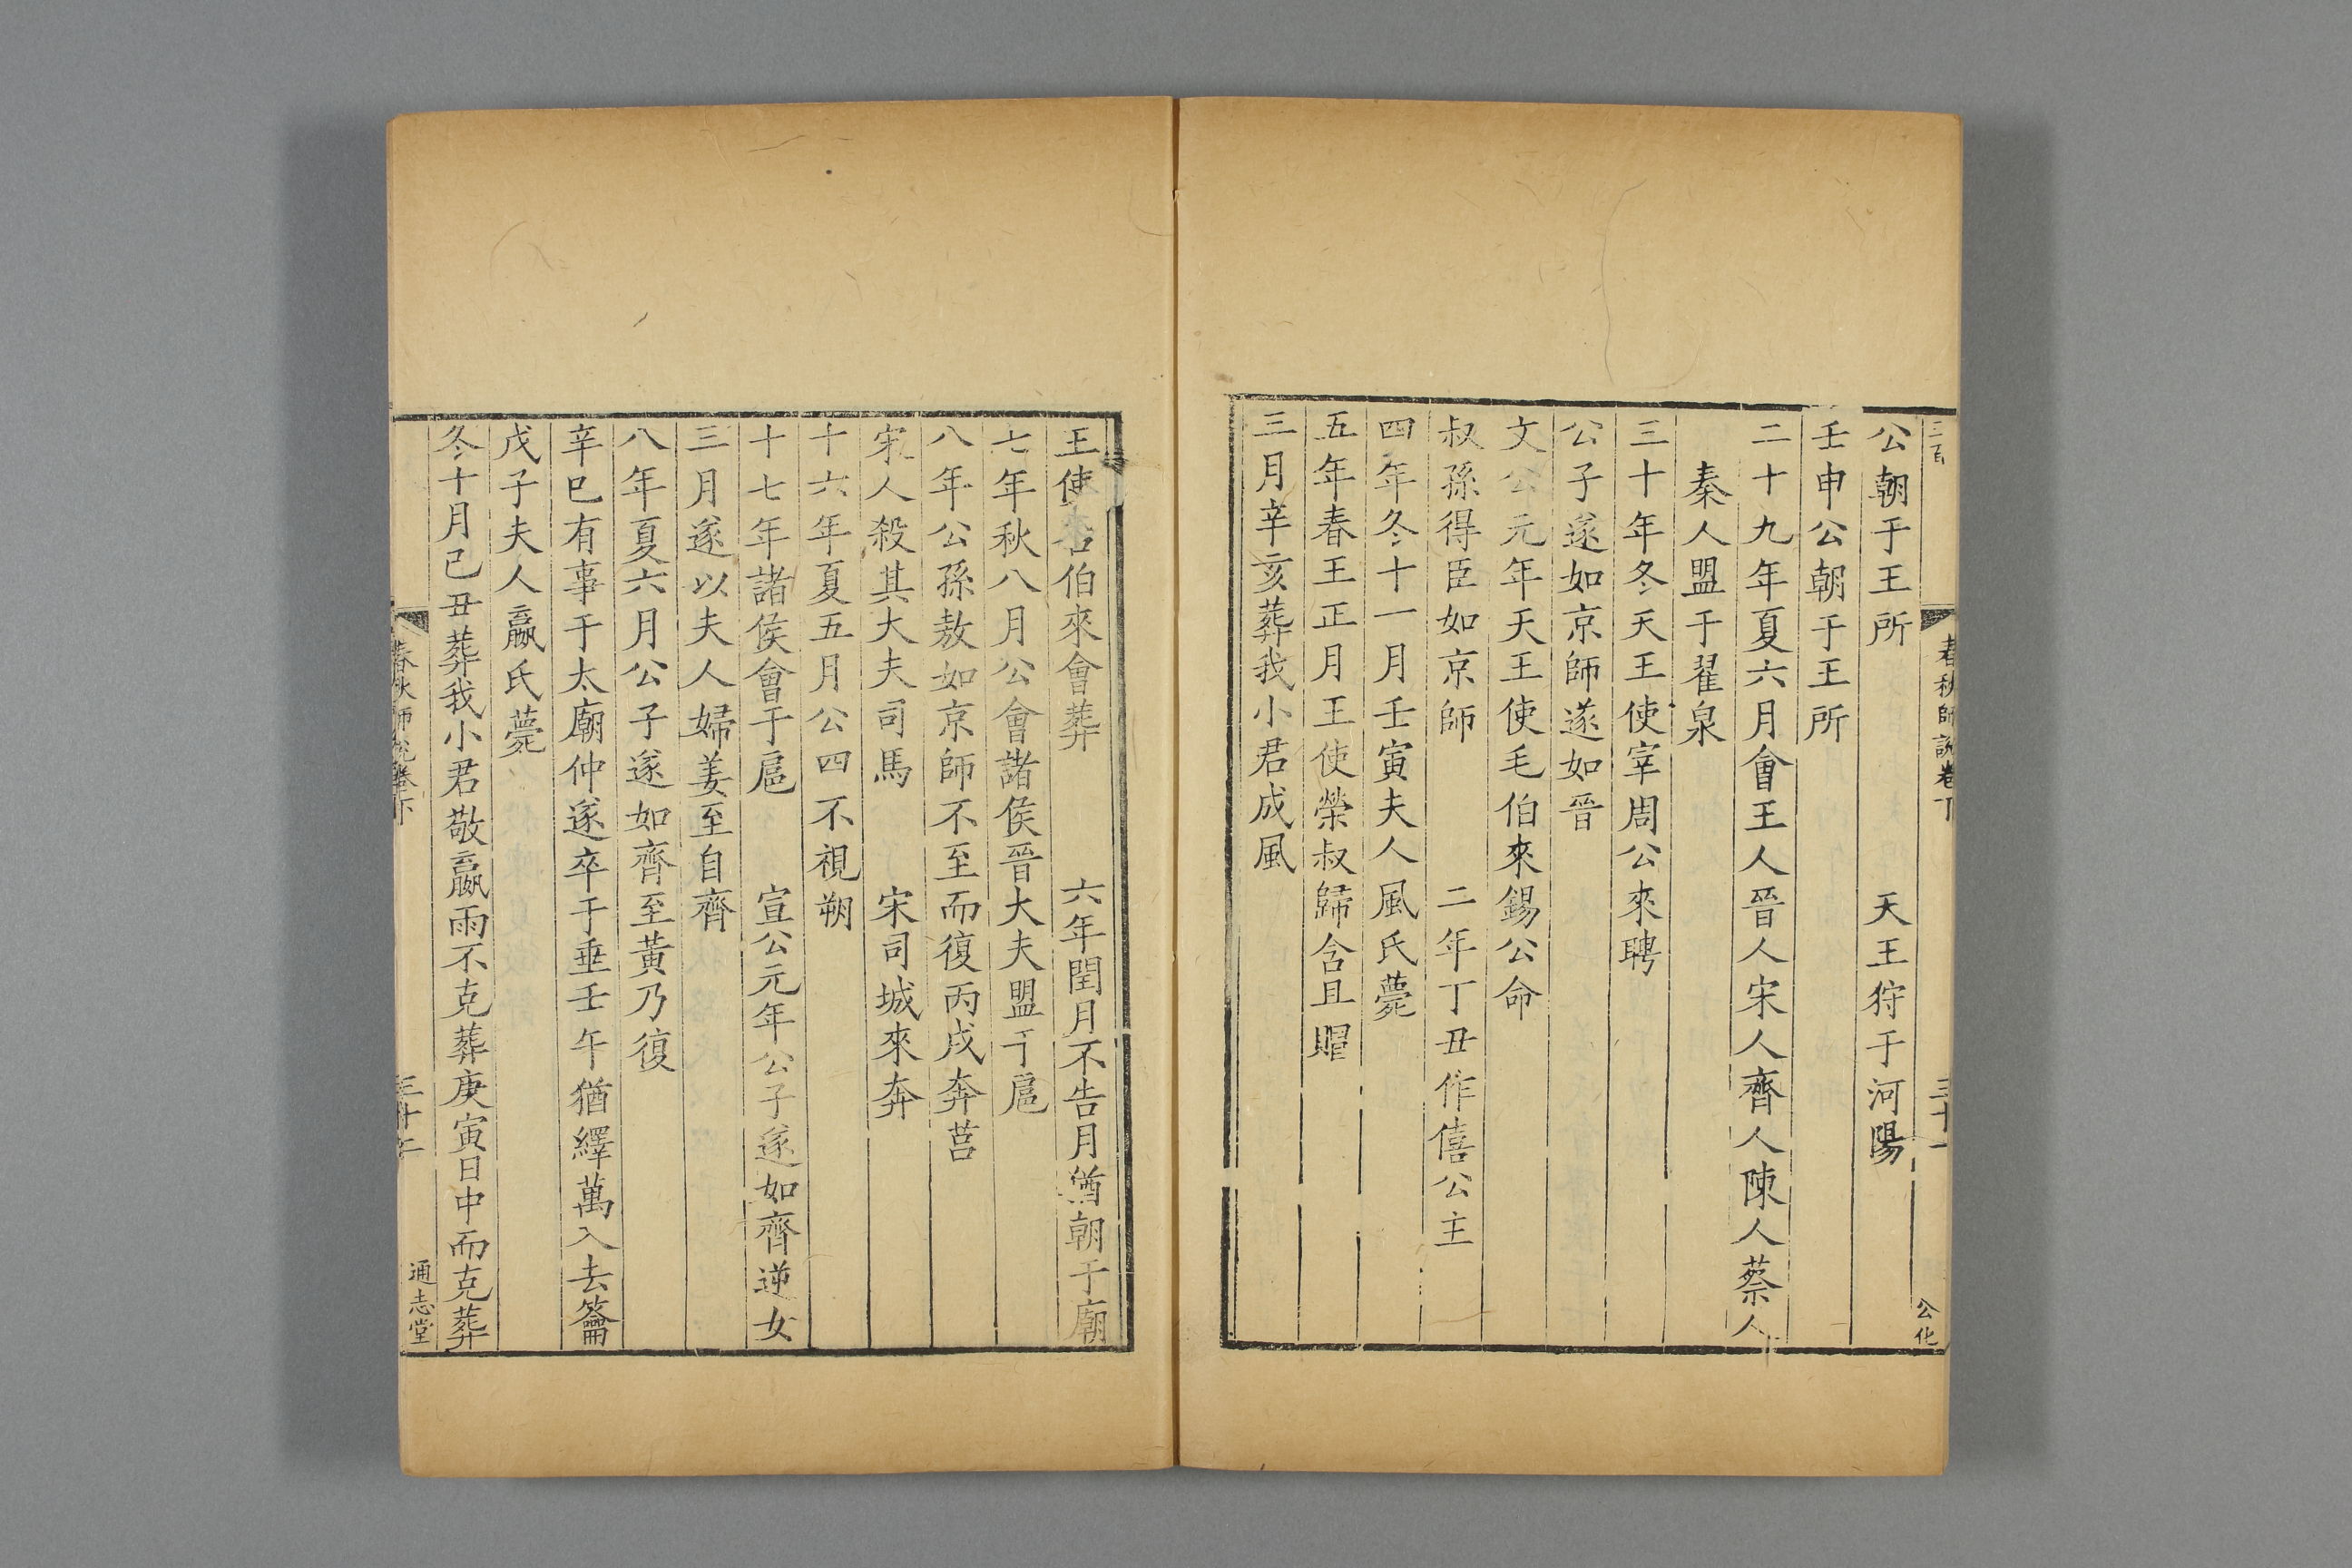 春秋師說卷下
三十一
公化
公朝于王所　天王狩于河陽
壬申公朝于王所
二十九年夏六月會王人晉人宋人齊人陳人蔡人
秦人盟于翟泉
三十年冬天王使宰周公來聘
公子遂如京師遂如晉
文公元年天王使毛伯來錫公命
叔孫得臣如京師　二年丁丑作僖公主
四年冬十一月壬寅夫人風氏薨
五年春王正月王使榮叔歸含且賵
三月辛亥葬我小君成風
王使召伯來會葬　六年閏月不告月猶朝于廟
七年秋八月公會諸侯晉大夫盟于扈
八年公孫敖如京師不至而復丙戌奔莒
宋人殺其大夫司馬　宋司城來奔
十六年夏五月公四不視朔
十七年諸侯會于扈　宣公元年公子遂如齊逆女
三月遂以夫人婦姜至自齊
八年夏六月公子遂如齊至黃乃復
辛巳有事于太廟仲遂卒于垂壬午猶繹萬入去籥
戊子夫人嬴氏薨
冬十月己丑葬我小君敬嬴雨不克葬庚寅日中而克葬
春秋師說卷下
通志堂